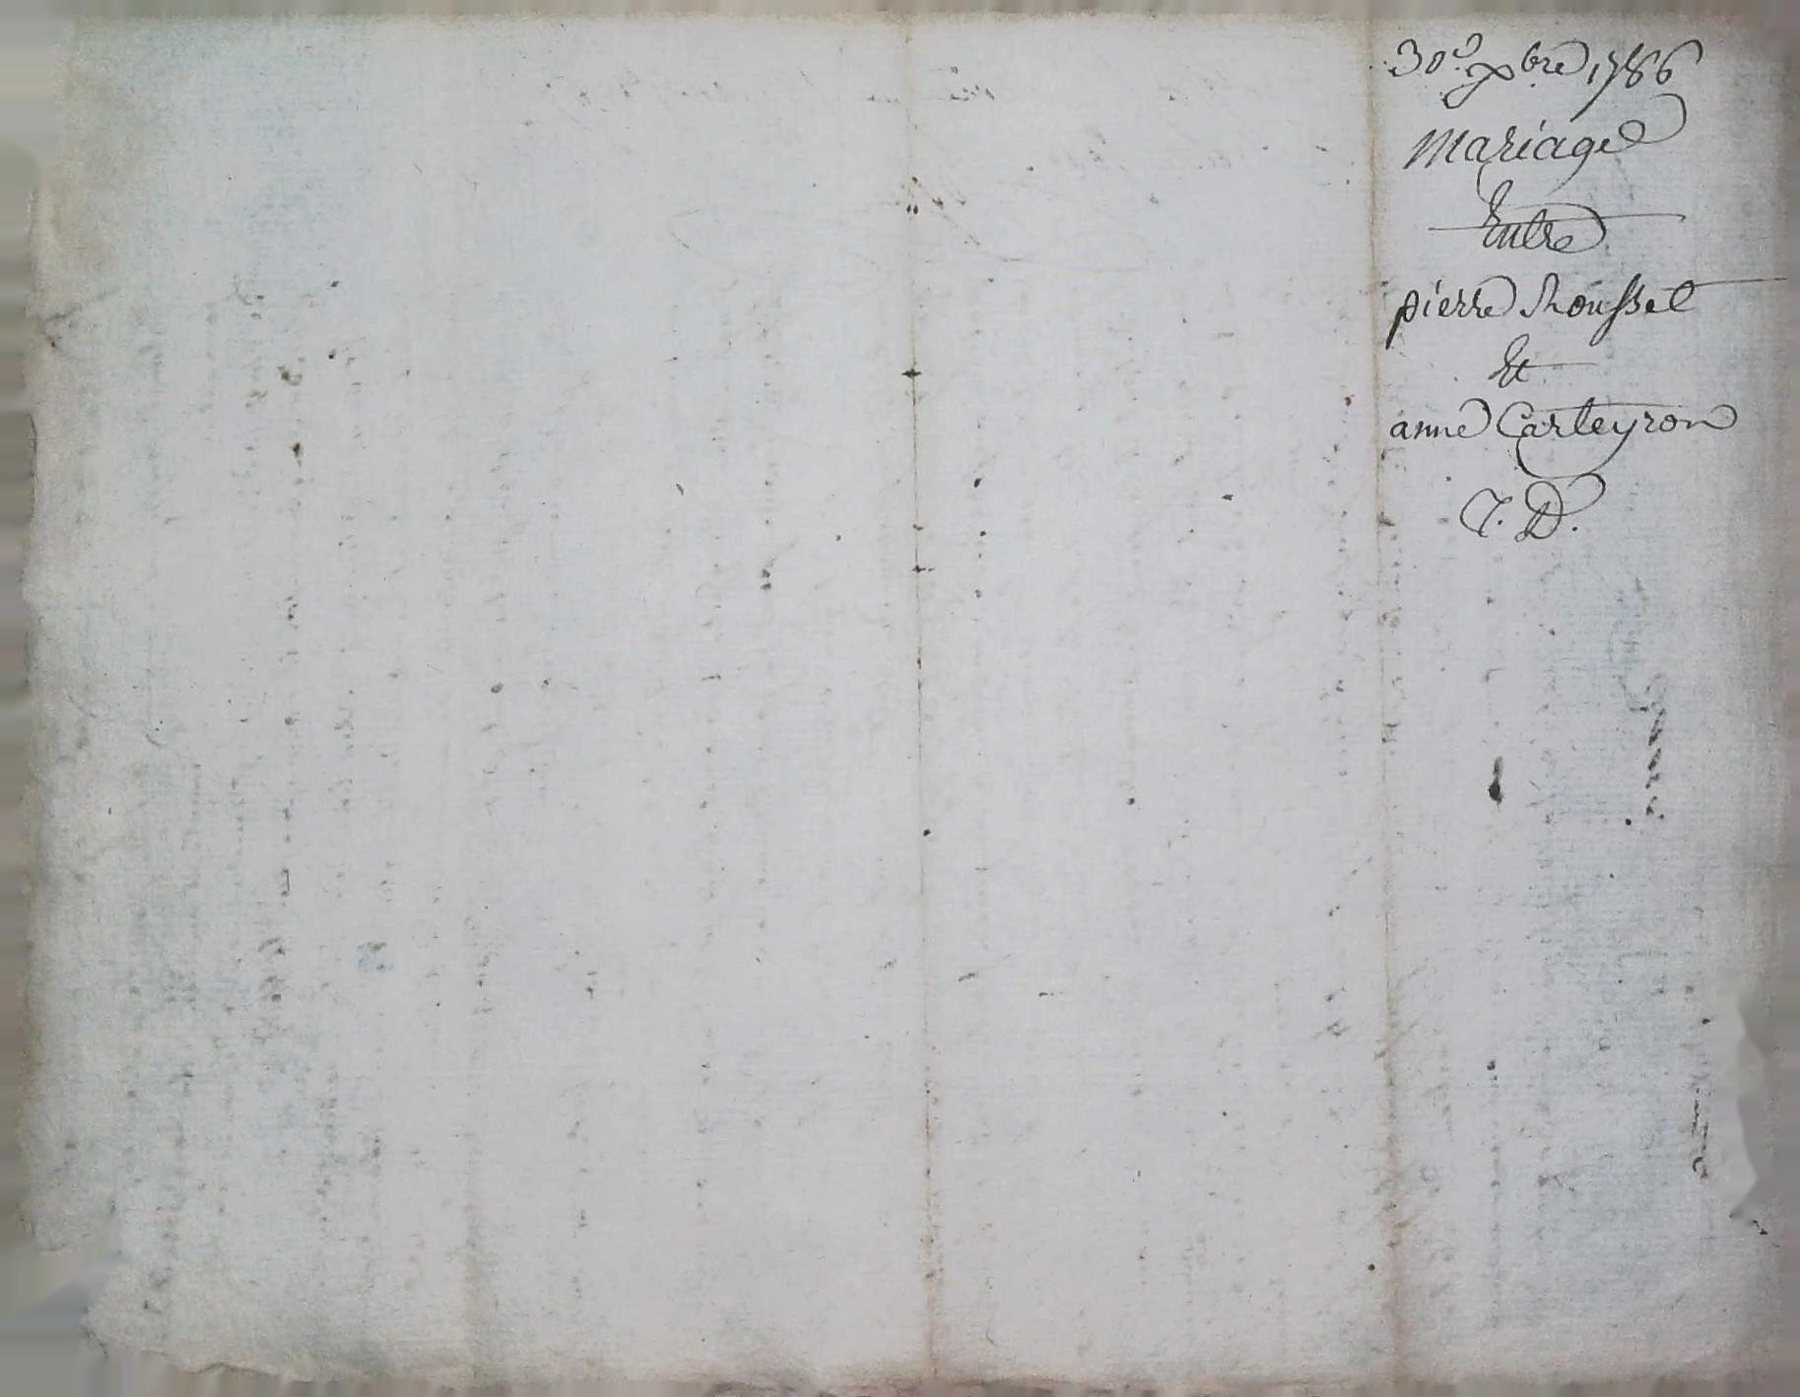 30e. xbre 1786
Mariage
Entre
pierre Roussel
Et
anne Carteyron
J. D.